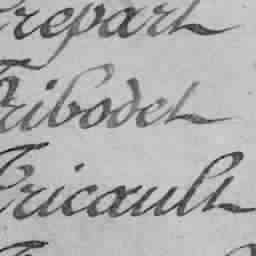 Trepart
Tribodet
Tricault